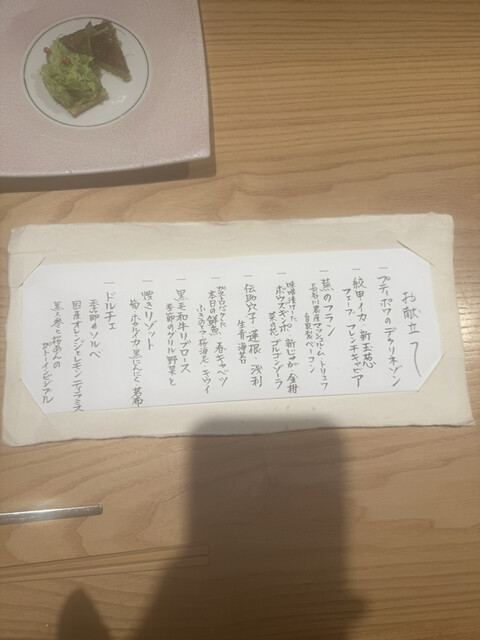 お献立て
一 プティポワのデクリネゾン
一 紋甲イカ 新玉葱
フェーブ フレンチキャビア
一 蕪のフラン
長谷川農産マッシュルーム トリュフ
自家製ベーコン
一 味噌漬けした
ホウズキンポ 新じゃが 金柑
菜の花 ゴルゴンゾーラ
一 伝助穴子 蓮根・浅利
生青海苔
一
本日の鮮魚 春キャベツ
ふきのとう 桜海老・キウイ
一 黒毛和牛リブロース
季節のグリル野菜と
一 焼きリゾット
筍 ホタルイカ 黒にんにく 若布
一 ドルチェ
季節のソルベ
国産オレンジとレモン ティラミス